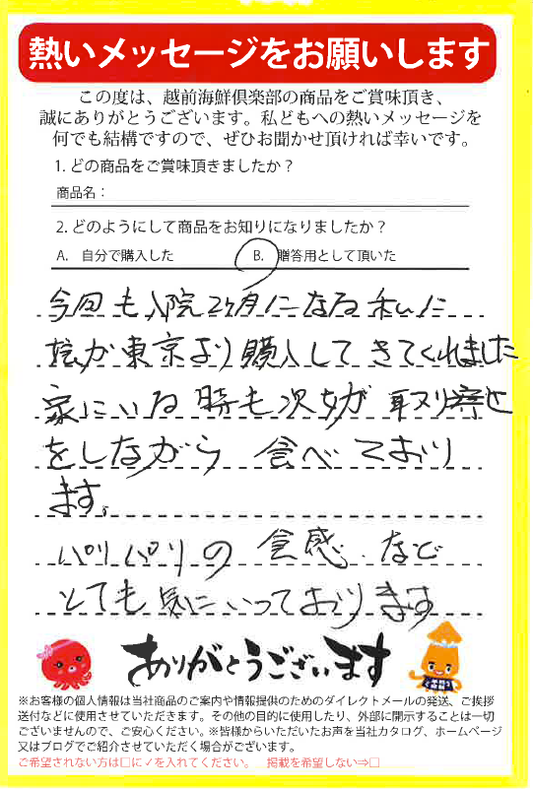 熱いメッセージをお願いします
この度は、越前海鮮倶楽部の商品をご賞味頂き、
誠にありがとうございます。私どもへの熱いメッセージを
何でも結構ですので、ぜひお聞かせ頂ければ幸いです。
1. どの商品をご賞味頂きましたか？
商品名：
2. どのようにして商品をお知りになりましたか？
A. 自分で購入した B. 贈答用として頂いた
今回も入院2ヶ月になる私に
が東京より購入してきてくれました
家にいる時も次女が取り寄せ
をしながら 食べており
ます。
パリパリの食感など
とても気にいっております
ありがとうございます
※お客様の個人情報は当社商品のご案内や情報提供のためのダイレクトメールの発送、ご挨拶
送付などに使用させていただきます。その他の目的に使用したり、外部に開示することは一切
ございませんので、ご安心ください。※皆様からいただいたお声を当社カタログ、ホームページ
又はブログでご紹介させていただく場合がございます。
ご希望されない方は□に✓を入れてください。 掲載を希望しない⇒□